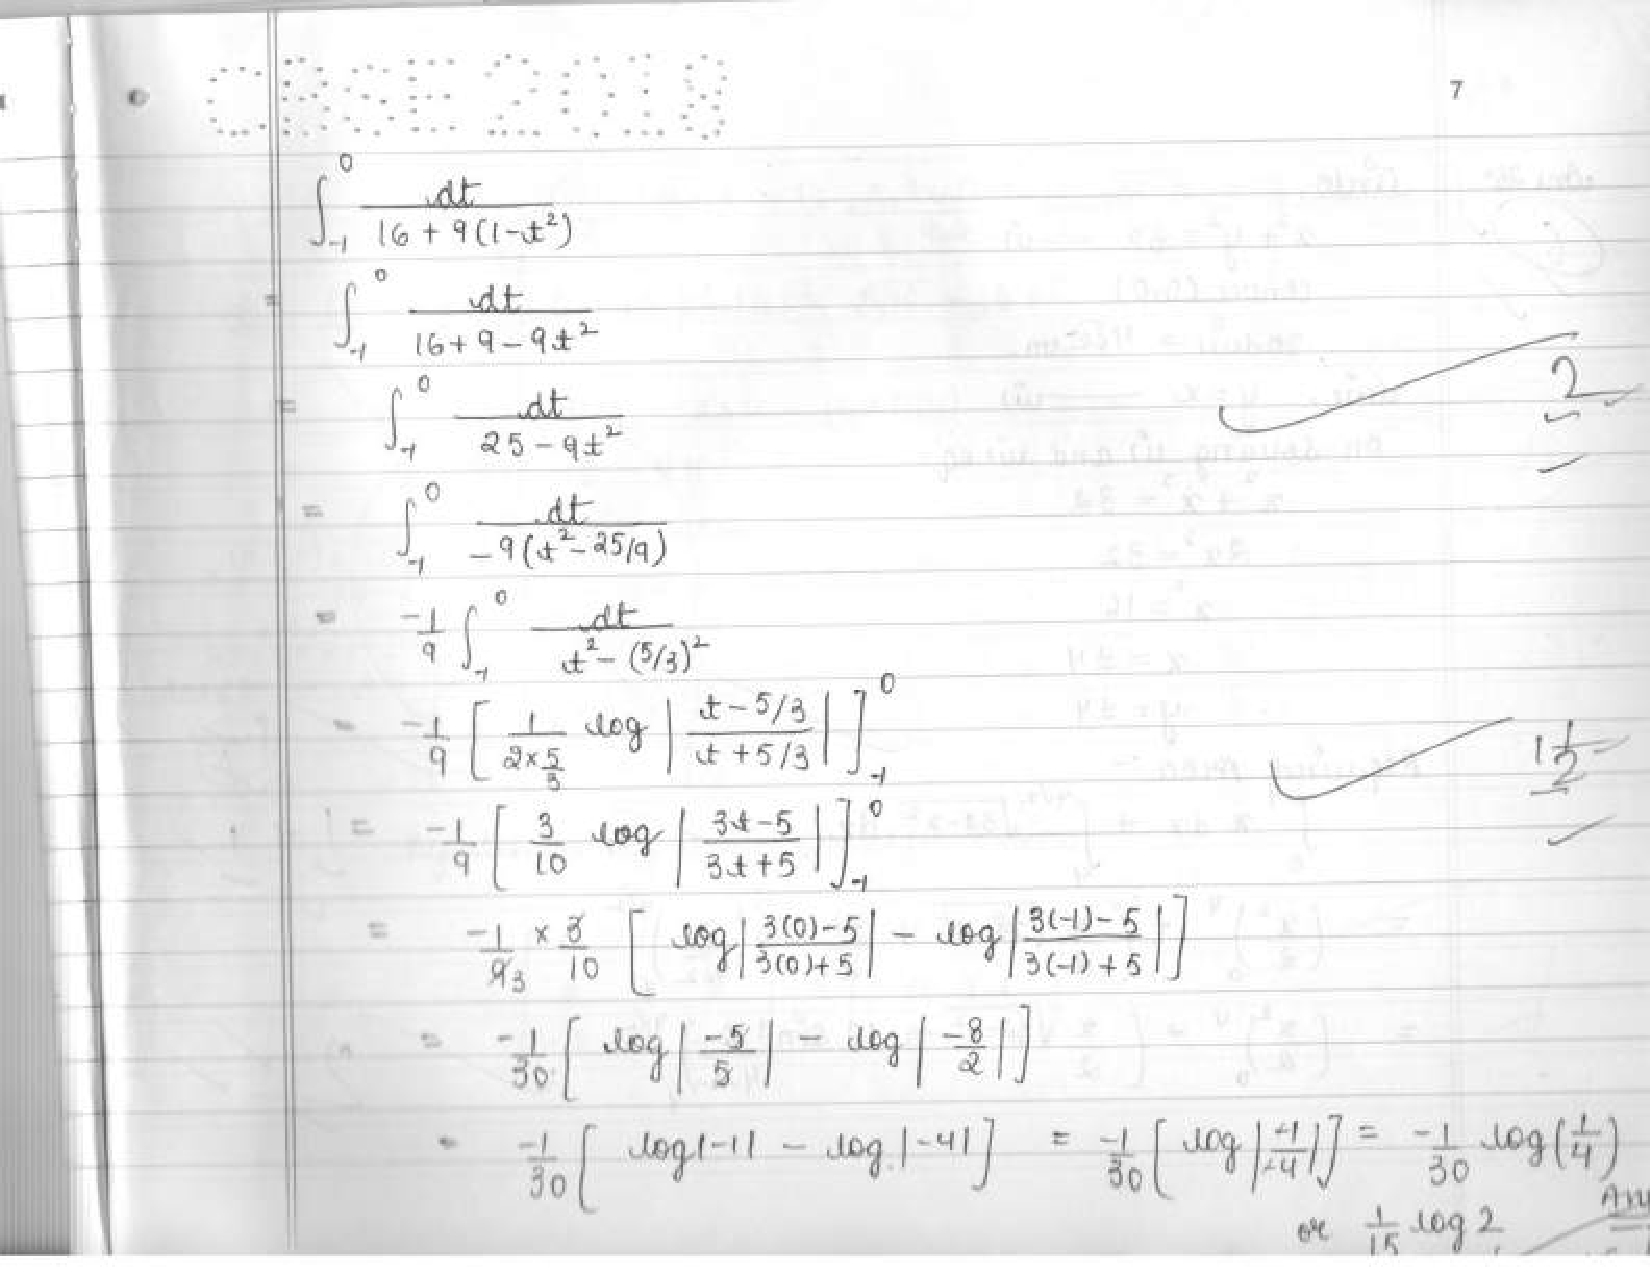 CBSE 2018
7
∫_{-1}^{0} dt / (16 + 9(1-t²))
= ∫_{-1}^{0} dt / (16+9-9t²)
= ∫_{-1}^{0} dt / (25-9t²)
2
= ∫_{-1}^{0} dt / (-9(t²-25/9))
= -1/9 ∫_{-1}^{0} dt / (t²-(5/3)²)
= -1/9 [ 1/(2×5/3) log | (t-5/3)/(t+5/3) | ]_{-1}^{0}
1 1/2
= -1/9 [ 3/10 log | (3t-5)/(3t+5) | ]_{-1}^{0}
= -1/9 3 × 3/10 [ log | (3(0)-5)/(3(0)+5) | - log | (3(-1)-5)/(3(-1)+5) | ]
= -1/30 [ log | -5/5 | - log | -8/2 | ]
= -1/30 [ log|-1| - log|-4| ] = -1/30 [ log | -1/-4 | ] = -1/30 log(1/4)
or 1/15 log 2 Ans